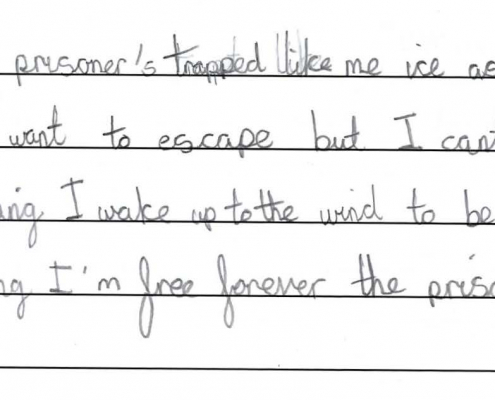 prisoner's trapped like me ice as
want to escape but I can
ing I wake up to the wind to be
ng I'm free forever the priso